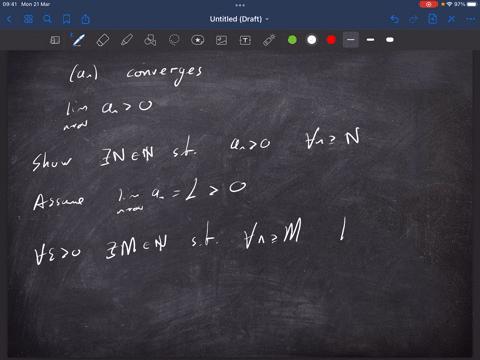 09:41 Mon 21 Mar
97%
Untitled (Draft)
(aₙ) converges
lim aₙ > 0
n→∞
Show ∃N∈ℕ s.t. aₙ>0 ∀n≥N
Assume lim aₙ = L > 0
n→∞
∀ε>0 ∃M∈ℕ s.t. ∀n≥M |